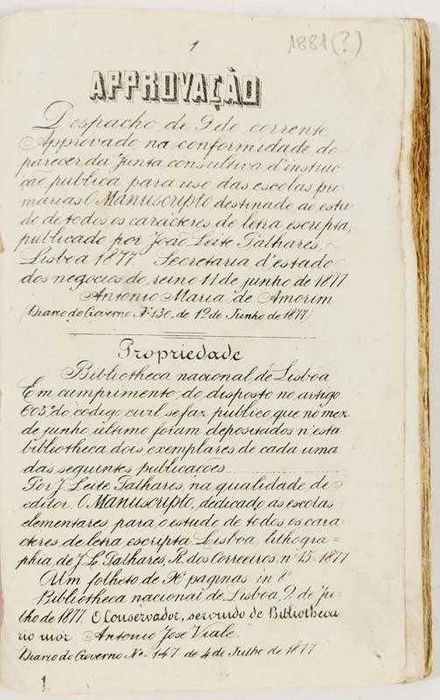 1881(?)
1
APPROVAÇÃO
Despacho de 9 do corrente
Approvado na conformidade do
parecer da Junta consultiva d'instruc-
ção publica para uso das escolas pri
marias O Manuscripto destinado ao estu
do de todos os caracteres de letra escripta,
publicado por João Leite Palhares
Lisboa 1877 Secretaria d'estado
dos negocios do reino 11 de junho de 1877
Antonio Maria de Amorim
Diario do Governo Nº 130, de 12 de Junho de 1877
Propriedade
Bibliotheca nacional de Lisboa
Em cumprimento do disposto no artigo
605º do codigo civil se faz publico que no mez
de junho ultimo foram depositados n'esta
bibliotheca dois exemplares de cada uma
das seguintes publicacoes
Por J Leite Palhares, na qualidade de
editor. O Manuscripto, dedicado as escolas
elementares para o estudo de todos os cara
cteres de letra escripta Lisboa lithogra=
phia de J L Palhares, R dos Correeiros nº 15 1877
Um folheto de paginas in 8º
Bibliotheca nacional de Lisboa 2 de Ju-
lho de 1877. O Conservador, servindo de Bibliotheca
rio mor Antonio José Viale
Diario do Governo Nº 147 de 4 de Julho de 1877
1